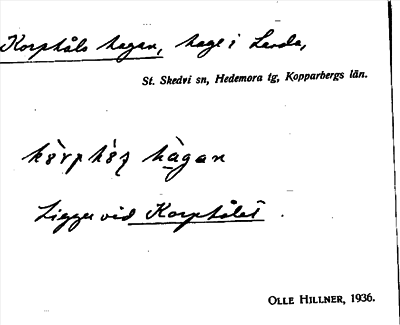 Korphåls hagan, hage i Landa,
St. Skedvi sn, Hedemora tg, Kopparbergs län.
hàgan
Ligger vid Korphålet.
OLLE HILLNER, 1936.